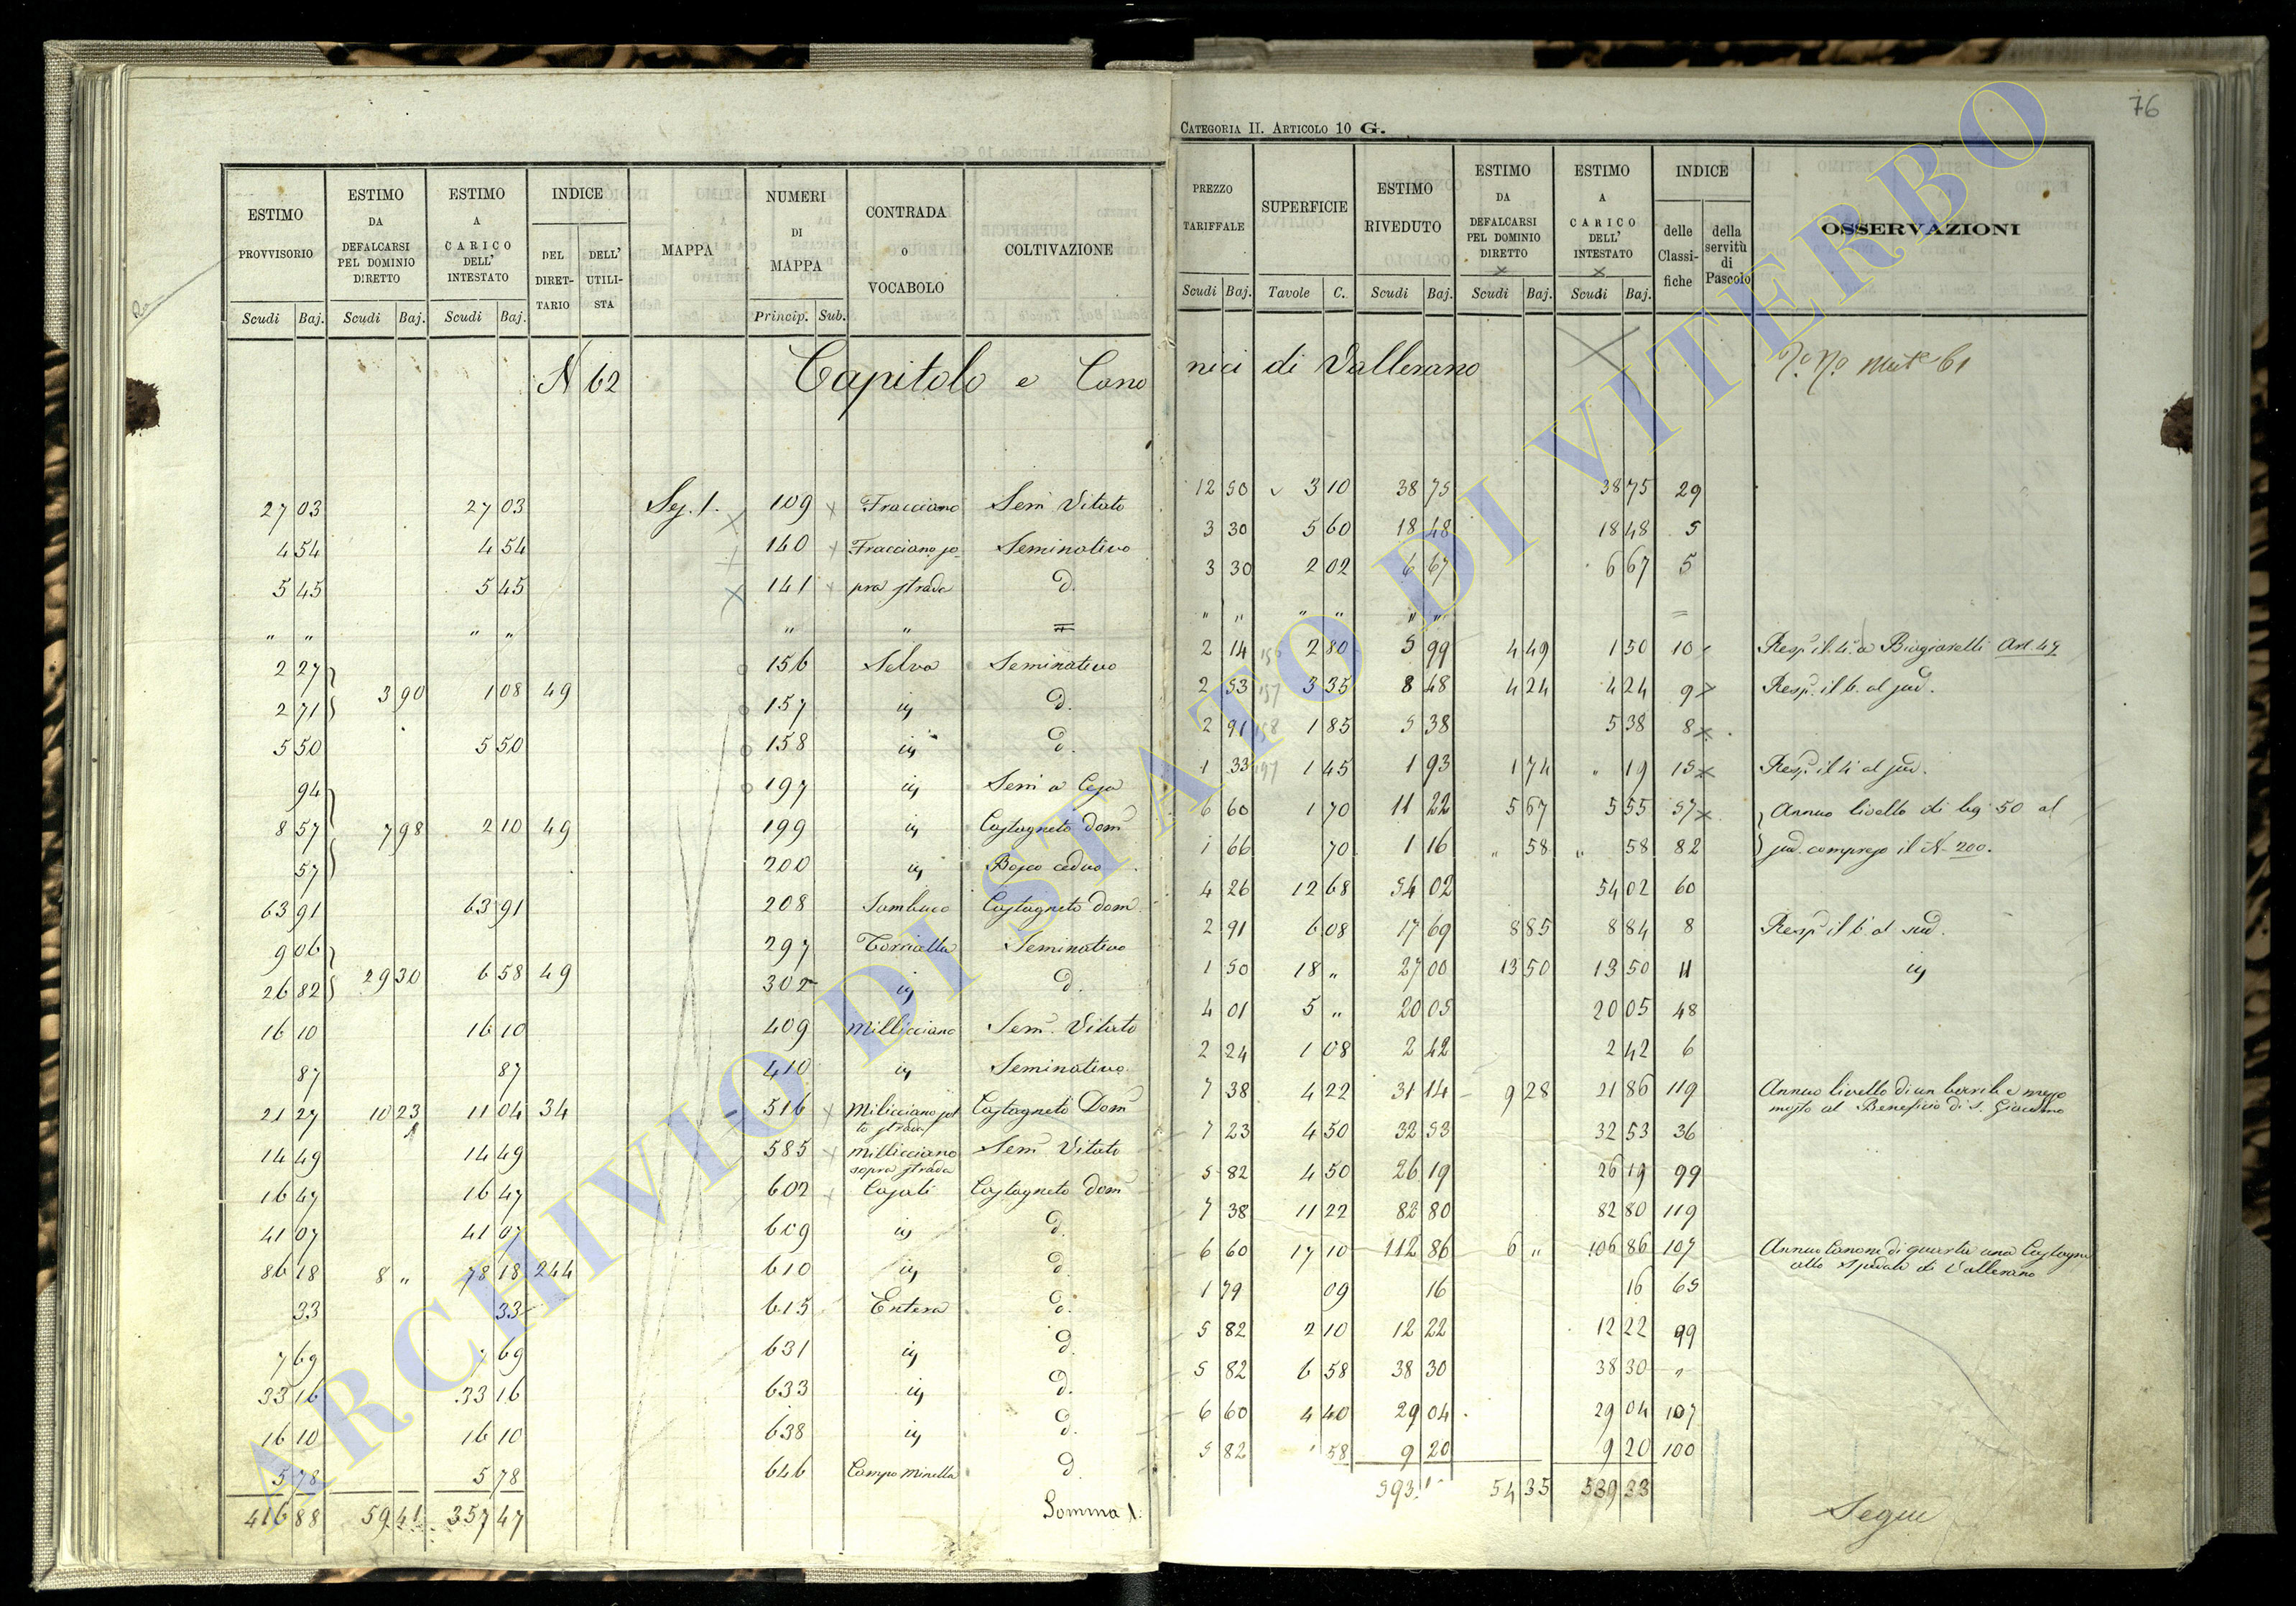 76
CATEGORIA II. ARTICOLO 10 G.
ESTIMO PROVVISORIO Scudi Baj.
ESTIMO DA DEFALCARSI PEL DOMINIO DIRETTO Scudi Baj.
ESTIMO A CARICO DELL' INTESTATO Scudi Baj.
INDICE DEL DIRETTARIO DELL' UTILISTA
MAPPA
NUMERI DI MAPPA Princip. Sub.
CONTRADA o VOCABOLO
COLTIVAZIONE
PREZZO TARIFFALE Scudi Baj.
SUPERFICIE Tavole C.
ESTIMO RIVEDUTO Scudi Baj.
ESTIMO DA DEFALCARSI PEL DOMINIO DIRETTO Scudi Baj.
ESTIMO A CARICO DELL' INTESTATO Scudi Baj.
INDICE delle Classifiche della servitù di Pascolo
OSSERVAZIONI
N 62 Capitolo e Cano nici di Vallerano
27 03 27 03 Sez. 1. 109 Fracciano Sem Vitato 12 50 3 10 38 75 38 75 29
4 54 4 54 140 Fracciano so Seminativo 3 30 5 60 18 48 18 48 5
5 45 5 45 141 pra strada d. 3 30 2 02 6 67 6 67 5
" " " " " " = " " " " " " =
2 27 156 Selva Seminativo 2 14 156 2 80 5 99 4 49 1 50 10 Risp. il 4 a Biagiarelli Art. 49
2 71 3 90 1 08 49 157 id d. 2 53 157 3 35 8 48 4 24 4 24 9 Risp. il 6. al sud.
5 50 5 50 158 id d. 2 91 158 1 85 5 38 5 38 8
94 197 id Sem a Cesa 1 33 197 1 45 1 93 1 74 " 19 15 Risp. il 4 al sud.
8 57 7 98 2 10 49 199 id Castagneto Dom 6 60 1 70 11 22 5 67 5 55 57 Annuo livello di bg 50 al
57 200 id Bosco ceduo 1 66 70 1 16 " 58 " 58 82 sud. compreso il N. 200.
63 91 63 91 208 Sambuco Castagneto Dom 4 26 12 68 54 02 54 02 60
9 06 297 Torricella Seminativo 2 91 6 08 17 69 8 85 8 84 8 Risp. il 6 al sud.
26 82 29 30 6 58 49 302 id d. 1 50 18 " 27 00 13 50 13 50 11 id
16 10 16 10 409 Millicciano Sem. Vitato 4 01 5 " 20 05 20 05 48
87 87 410 id Seminativo 2 24 1 08 2 42 2 42 6
21 27 10 23 11 04 34 516 Milicciano sot Castagneto Dom 7 38 4 22 31 14 9 28 21 86 119 Annuo livello di un barile e mezzo
to strada mosto al Beneficio di S. Giacomo
14 49 14 49 585 Millicciano Sem Vitato 7 23 4 50 32 53 32 53 36
sopra strada
16 47 16 47 602 Casali Castagneto Dom 5 82 4 50 26 19 26 19 99
41 07 41 07 609 id d. 7 38 11 22 82 80 82 80 119
86 18 8 " 78 18 244 610 id d. 6 60 17 10 112 86 6 " 106 86 107 Annuo Canone di quarta una Castagne
allo Spedale di Vallerano
33 33 615 Entera d. 1 79 09 16 16 65
7 69 7 69 631 id d. 5 82 2 10 12 22 12 22 99
33 16 33 16 633 id d. 5 82 6 58 38 30 38 30 "
16 10 16 10 638 id d. 6 60 4 40 29 04 29 04 107
5 78 5 78 646 Campo Minella d. 5 82 1 58 9 20 9 20 100
416 88 59 41 357 47 Somma 1. 54 35 539 33
Segue
ARCHIVIO DI STATO DI VITERBO